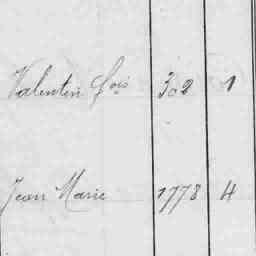 Valentin fois 302 1
Jean Marie 1778 4